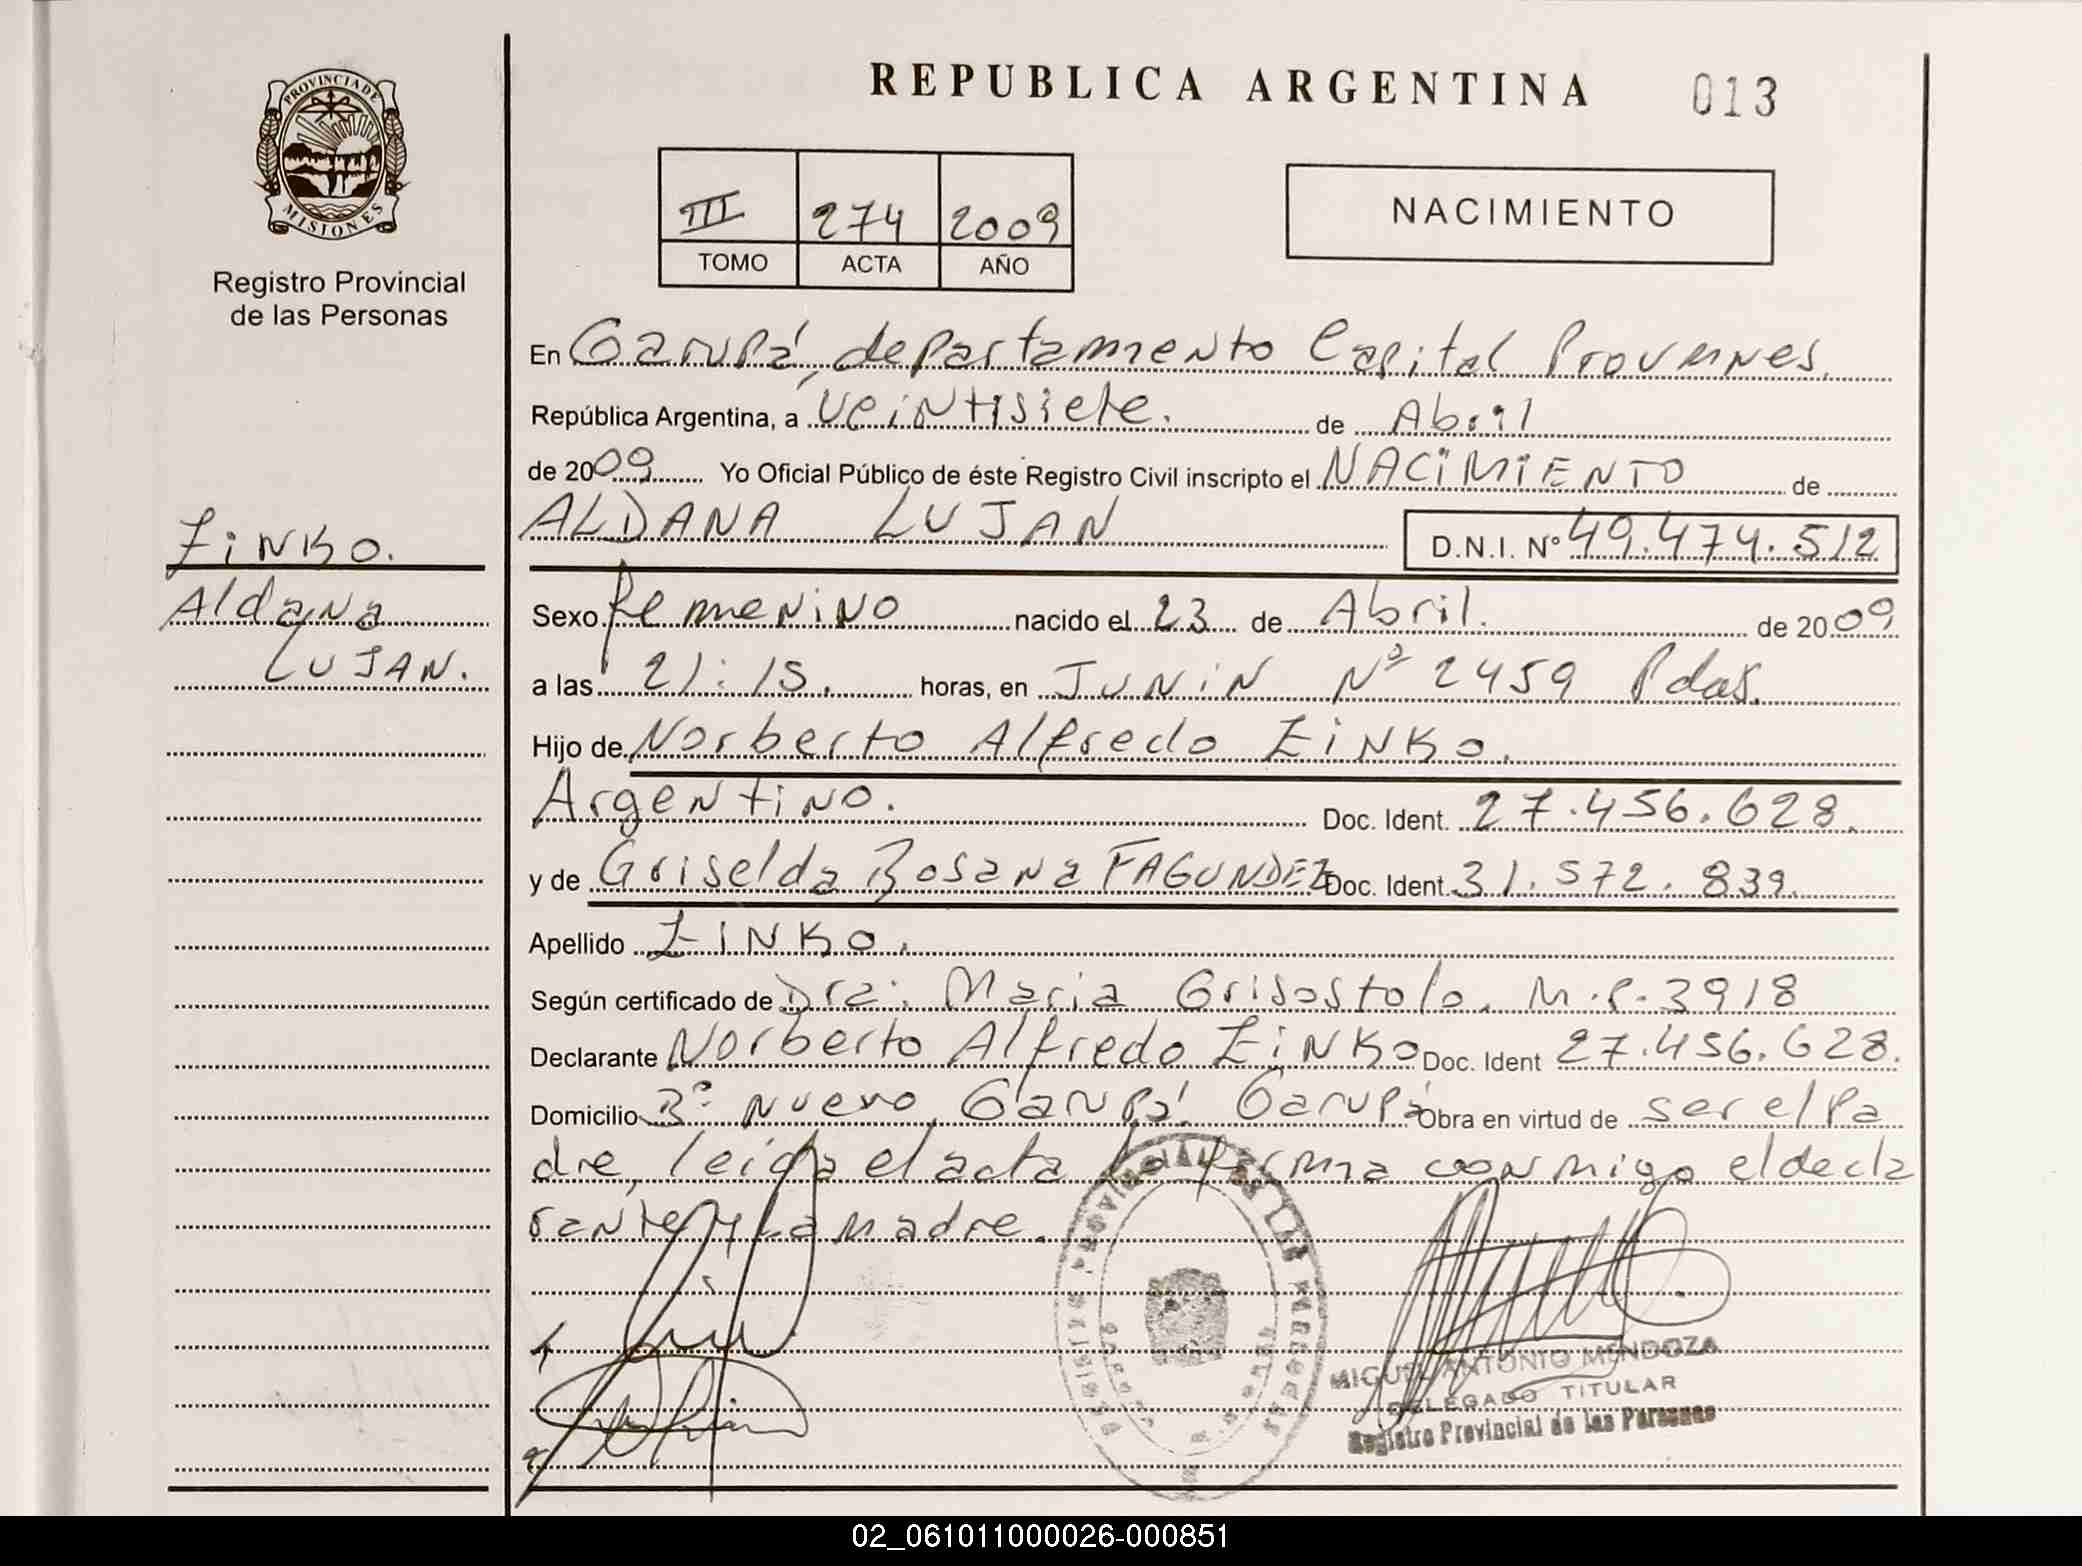 PROVINCIA DE
MISIONES
Registro Provincial
de las Personas
REPUBLICA ARGENTINA 013
III 274 2009
TOMO ACTA AÑO
NACIMIENTO
En Garupá, departamento Capital
República Argentina, a veintisiete. de Abril
de 2009 Yo Oficial Público de éste Registro Civil inscripto el NACIMIENTO de
ALDANA LUJAN D.N.I. Nº 49.474.512
ZINKO.
Aldana
LUJAN.
Sexo femenino nacido el 23 de Abril. de 2009
a las 21:15. horas, en JUNIN Nº 2459 Pdas.
Hijo de Norberto Alfredo ZINKO.
Argentino. Doc. Ident. 27.456.628.
y de Griselda Rosana FAGUNDEZ Doc. Ident. 31.572.839.
Apellido ZINKO.
Según certificado de Dra. Maria Grisostolo. M.P. 3918
Declarante Norberto Alfredo ZINKO Doc. Ident 27.456.628.
Domicilio Bº Nuevo Garupá. Garupá Obra en virtud de ser el Pa
dre, leida el acta la firma conmigo el decla
rante y la madre.
MIGUEL ANTONIO MENDOZA
DELEGADO TITULAR
Registro Provincial de las Personas
02_061011000026-000851